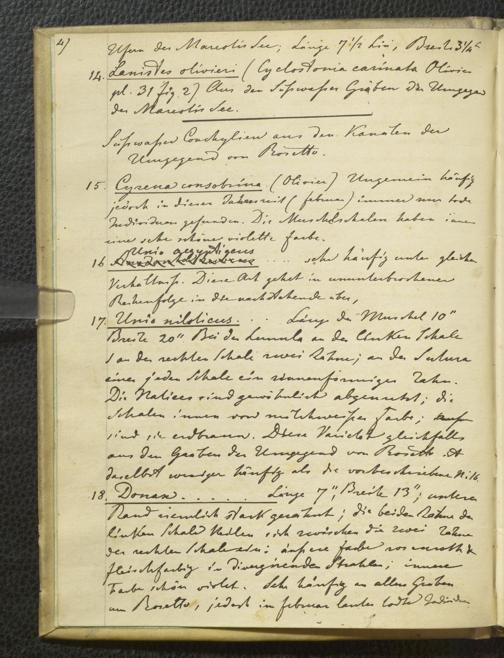 4)
Ufern des Mareotis See; Länge 7 1/2 Lin, Breite 3 1/4"
14. Lanistes olivieri (Cyclostonia carinata Olivier
pl. 31 fig. 2) Aus den Süßwasser Gräben der Umgegend
des Mareotis See.
Süßwasser Conchylien aus den Kanälen der
Umgegend von Rosetto.
15. Cyrena consobrina (Olivier) Ungemein häufig
jedoch in dieser Jahreszeit (februar) immer nur todte
Individuen gefunden. Die Muschelschalen haben innen
eine sehr schöne violette farbe.
16. Unio aegyptiacus .... sehr häufig unter gleichen
Verhältniss. Diese Art gehet in ununterbrochener
Reihenfolge in die nachstehende über,
17. Unio niloticus. . . Länge der Muschel 10"
Breite 20" Bei der Lunula an der linken Schale
1 an der rechten Schale zwei Zähne; an der Sutura
einer jeden Schale ein rinnenförmiger Zahn.
Die Natices sind gewöhnlich abgenutzt; die
Schalen innen von milchweisser Farbe;
sind sie erdbraun. Diese Varietät gleichfalls
aus den Gräben der Umgegend von Rosetto ist
daselbst weniger häufig als die vorbeschriebene N. 16.
18. Donax. . . . . . Länge 7", Breite 13"; unterer
Rand ziemlich stark gezähnt; die beiden Zähne der
linken Schale keilen sich zwischen die zwei Zähne
der rechten Schale ein; äussere farbe rosenroth &
fleischfarbig in divergirenden Strahlen; innere
Farbe schön violet. Sehr häufig in allen Gräben
um Rosetto, jedoch im februar lauter todte Individuen